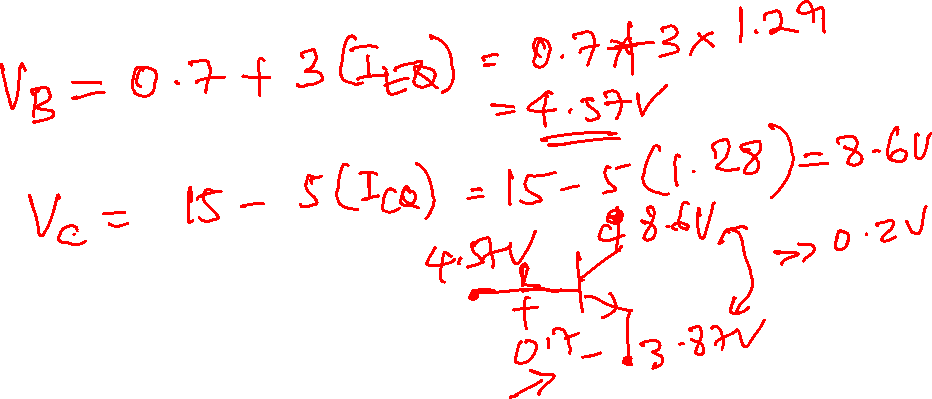 V_B = 0.7 + 3 (I_EQ) = 0.7 + 3 × 1.29
= 4.57V
V_C = 15 - 5 (I_CQ) = 15 - 5 (1.28) = 8.6V
4.57V
8.6V
>> 0.2V
+
0.7 -
3.87V